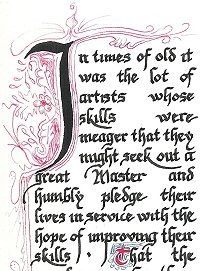 In times of old it
was the lot of
artists whose
skills were
meager that they
might seek out a
great Master and
humbly pledge their
lives in service with the
hope of improving their
skills · That the